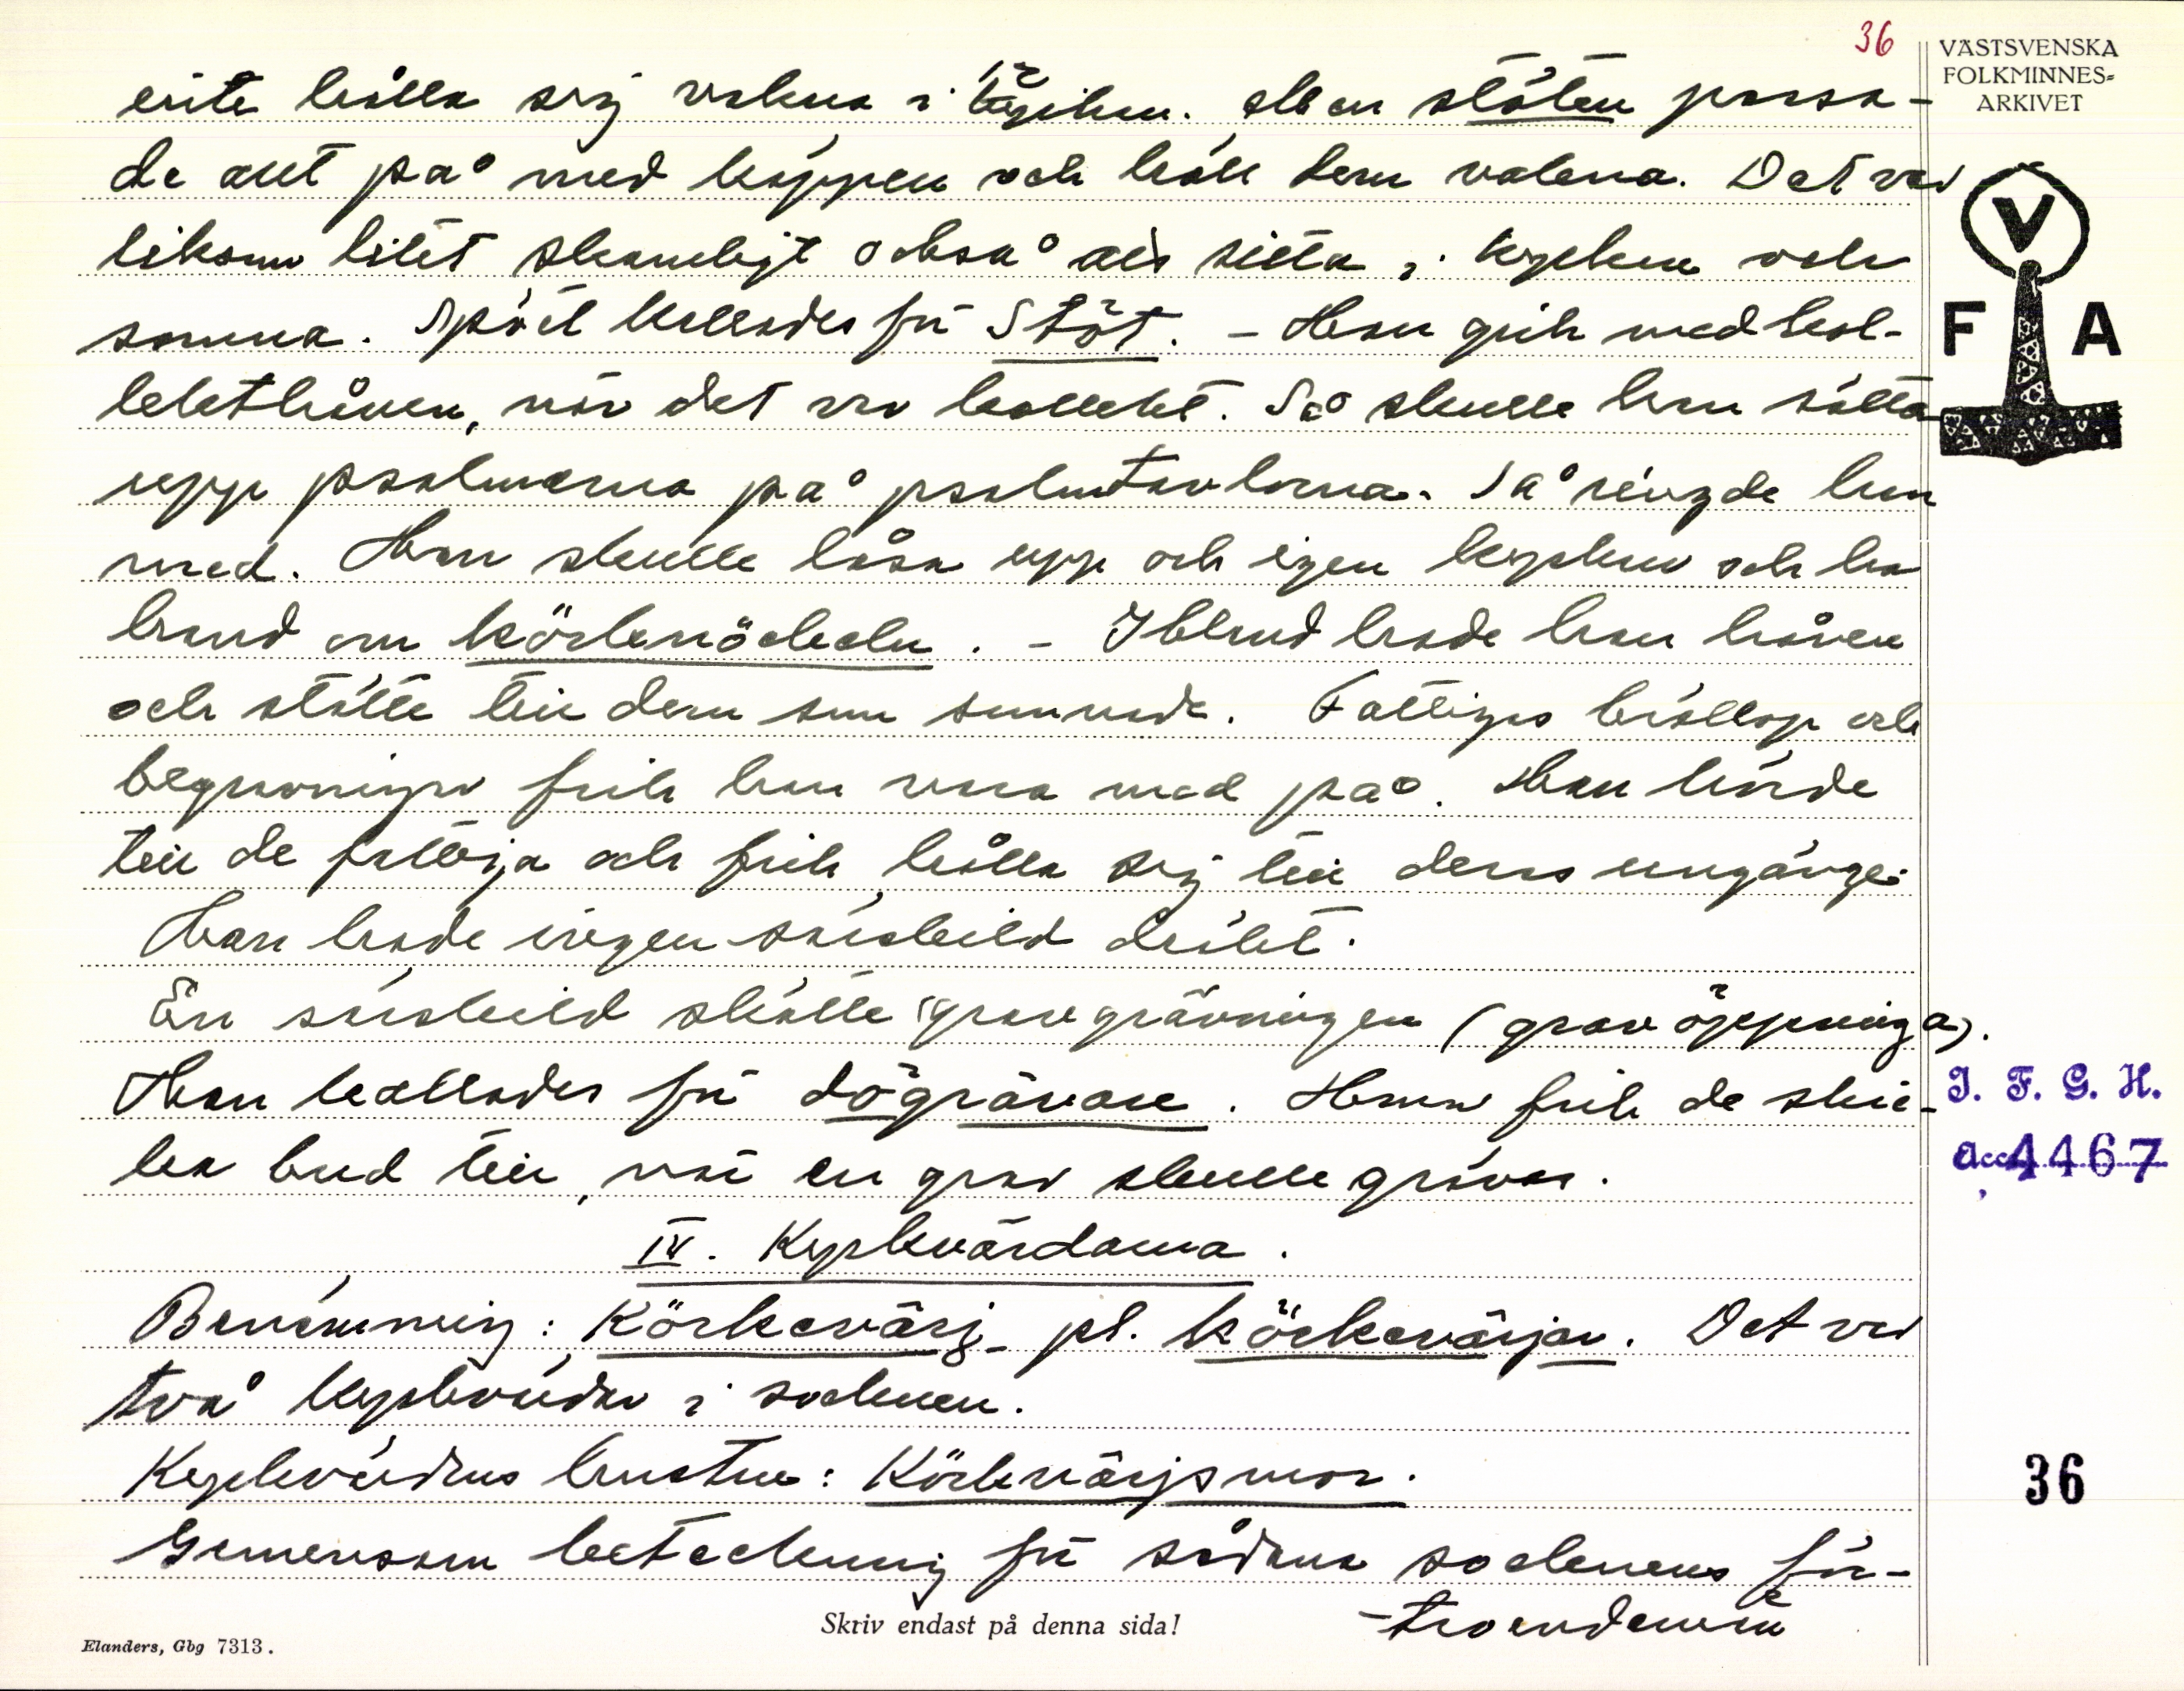 36
VÄSTSVENSKA
FOLKMINNES-
ARKIVET
inte hålla sig vakna i kyrkan. Men stöten passa-
de att på med käppen och höll dem vakna. Det var
liksom litet skamligt också att sitta i kyrkan och
somna. Spöet kallades för Stöt. - Han gick med kol-
lekthåven, när det var kollekt. Så skulle han sätta
upp psalmerna på psalmtavlorna. Så ringde han
med. Han skulle låsa upp och igen kyrkan och ha
hand om körkenöckeln. - Ibland hade han håven
och stötte till dem som somnade. Fattigas bröllop och
begravningar fick han vara med på. Han hörde
till de fattiga och fick hålla sig till deras umgänge.
Han hade ingen särskild dräkt.
En särskild skötte gravgrävningen (gravöppninga).
Han kallades för dögrävare. Honom fick de skic-
ka bud till, när en grav skulle grävas.
IV. Kyrkvärdarna.
Benämning: Körkevärj pl. körkevärjar. Det var
två kyrkvärdar i socknen.
Kyrkvärdens hustru: Körkevärjsmor.
Gemensam beteckning för sådana socknens för-
-troendemän
F V A
I. F. G. H.
acc 4467
36
Skriv endast på denna sida!
Elanders, Gbg 7313.